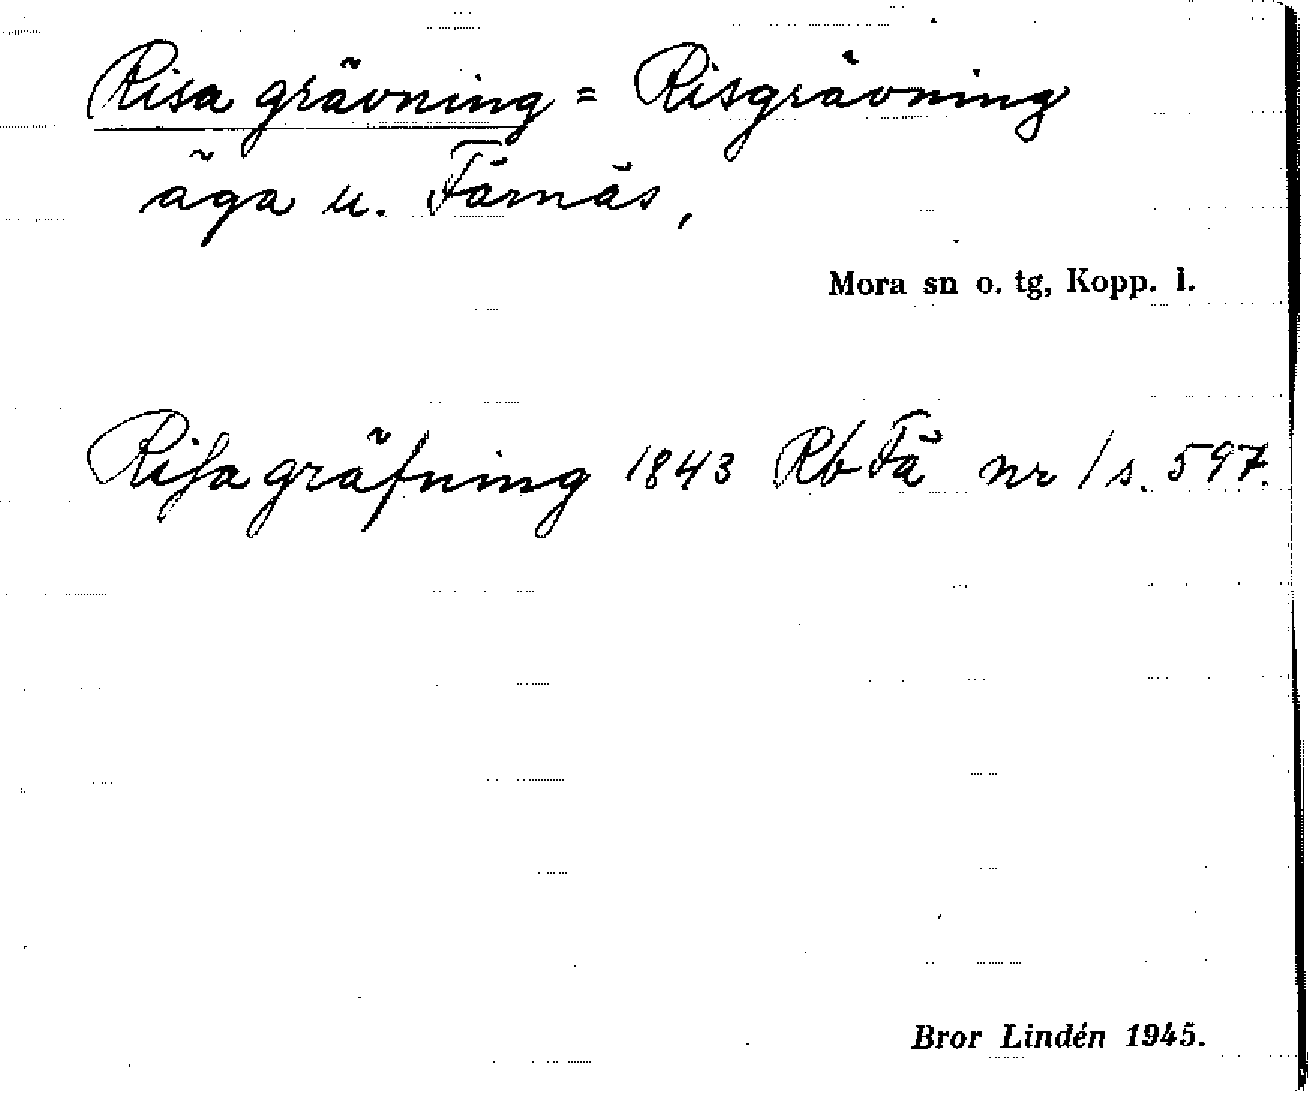 Risa grävning = Risgrävning
äga u. Färnäs,
Mora sn o. tg, Kopp. l.
Risa gräfning 1843 Rb Fä nr 1 s. 597.
Bror Lindén 1945.